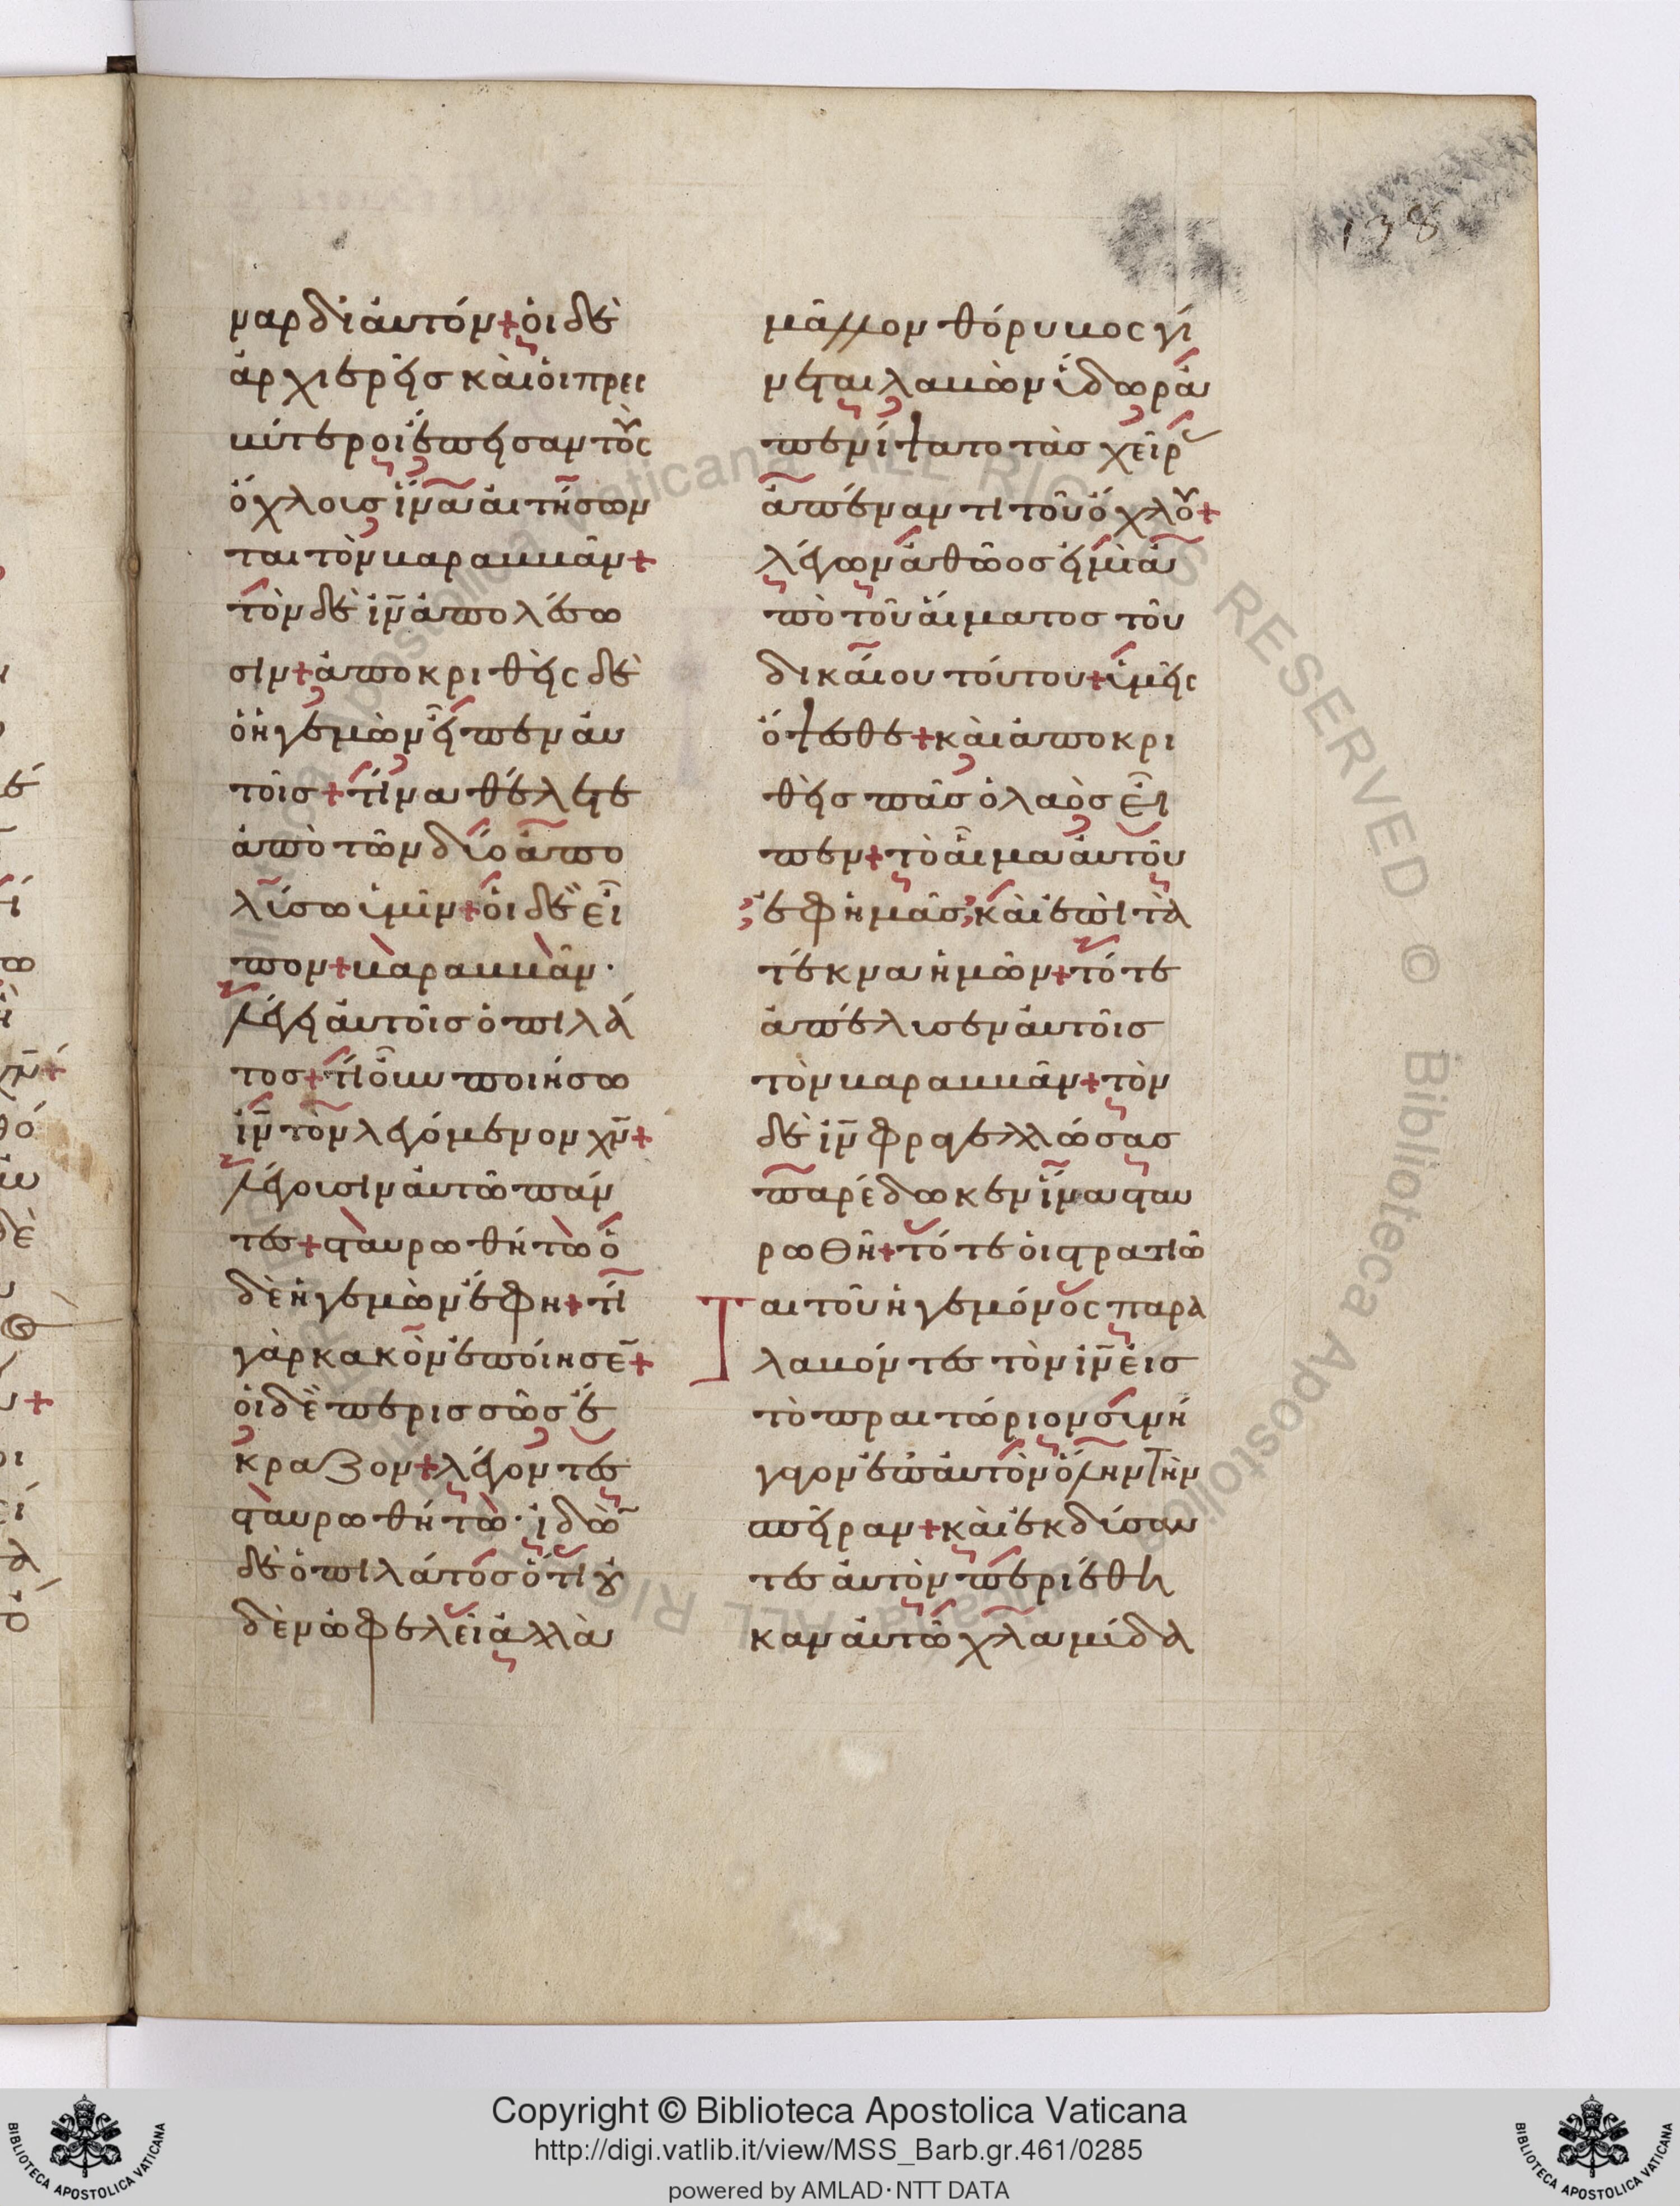 ναρ δι αυτόν + ὁι δὲ
ἀρχιερεῖς καὶ ὁι πρεσ
βύτεροι ἔπεισαν τοὺς
ὄχλοις ἵνα αἰτήσων
ται τὸν βαραββᾶν +
τὸν δὲ ιν̄ ἀπολέσω
σιν + ἀποκριθεὶς δὲ
ὁ ἡγεμὼν εἶπεν αυ
τοῖς + τίνα θέλετε
ἀπὸ τῶν δύο ἀπο
λύσω ὑμῖν + ὁι δὲ εἶ
πον + βαραββᾶν ·
λέγει αὐτοῖς ὁ πιλά
τος + τί οὖν ποιήσω
ιν̄ τὸν λεγόμενον χν̄ +
λέγουσιν αὐτῶ πάν
τες + σταυρωθήτω ὁ
δὲ ἡγεμὼν ἔφη + τί
γὰρ κακὸν ἐποίησε̄ +
ὁι δὲ περισσῶς ἔ
κραζον + λέγοντες
σταυρωθήτω · ἰδὼ̄
δὲ ὁ πιλάτος ὅτι οὐ
δὲν ὠφελεῖ ἀλλὰ
μᾶλλον θόρυβος γί
νεται λαβὼν ὕδωρ ἀ
πενίψατο τὰς χεῖρ
ἀπέναντι τοῦ ὄχλου +
λέγων ἀθῶος εἰμὶ ἀ
πὸ τοῦ αἵματος τοῦ
δικαίου τούτου + ὑμεῖς
ὄψεσθε + καὶ ἀποκρι
θεὶς πᾶς ὁ λαὸς εἶ
πεν + τὸ αἷμα αὐτοῦ
ἐφ ἡμᾶς καὶ ἐπὶ τὰ
τέκνα ἡμῶν + τότε
ἀπέλυσεν αὐτοῖς
τὸν βαραββᾶν + τὸν
δὲ ιν̄ φραγελλώσας
παρέδωκεν ἵνα σταυ
ρωθῆ + τότε ὁι στρατιῶ
ται τοῦ ἡγεμόνος παρα
λαβόντες τὸν ιν̄ εἰς
τὸ πραιτώριον συνή
γαγον ἐπ αὐτὸν ὅλην τὴν
σπεῖραν + καὶ ἐκδύσαν
τες αὐτὸν περιέθη
καν αὐτῶ χλαμύδα
138
Copyright © Biblioteca Apostolica Vaticana
http://digi.vatlib.it/view/MSS_Barb.gr.461/0285
powered by AMLAD·NTT DATA
BIBLIOTECA APOSTOLICA VATICANA
BIBLIOTECA APOSTOLICA VATICANA